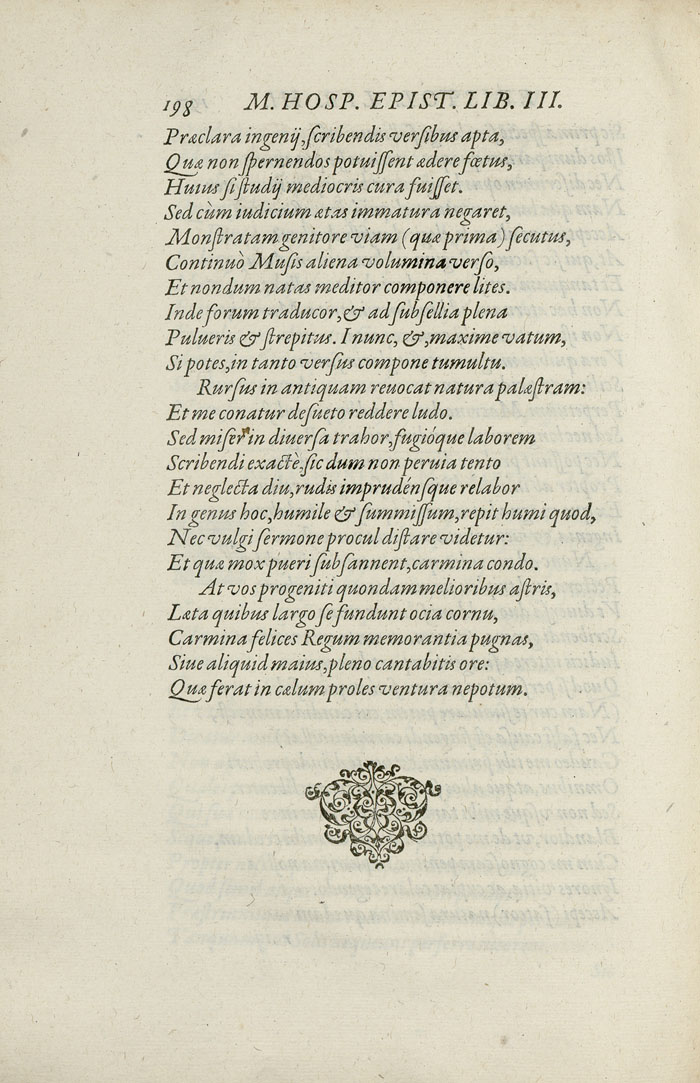 198 M. HOSP. EPIST. LIB. III.
Præclara ingenij, scribendis versibus apta,
Quæ non spernendos potuissent ædere fœtus,
Huius si studij mediocris cura fuisset.
Sed cùm iudicium ætas immatura negaret,
Monstratam genitore viam (quæ prima) secutus,
Continuò Musis aliena volumina verso,
Et nondum natas meditor componere lites.
Inde forum traducor, & ad subsellia plena
Pulueris & strepitus. I nunc, &, maxime vatum,
Si potes, in tanto versus compone tumultu.
Rursus in antiquam reuocat natura palæstram:
Et me conatur desueto reddere ludo.
Sed miser in diuersa trahor, fugióque laborem
Scribendi exactè, sic dum non peruia tento
Et neglecta diu, rudis imprudénsque relabor
In genus hoc, humile & summissum, repit humi quod,
Nec vulgi sermone procul distare videtur:
Et quæ mox pueri subsannent, carmina condo.
At vos progeniti quondam melioribus astris,
Læta quibus largo se fundunt ocia cornu,
Carmina felices Regum memorantia pugnas,
Siue aliquid maius, pleno cantabitis ore:
Quæ ferat in cælum proles ventura nepotum.